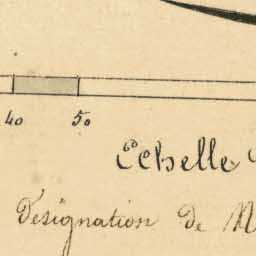 40 50
Echelle
Designation de